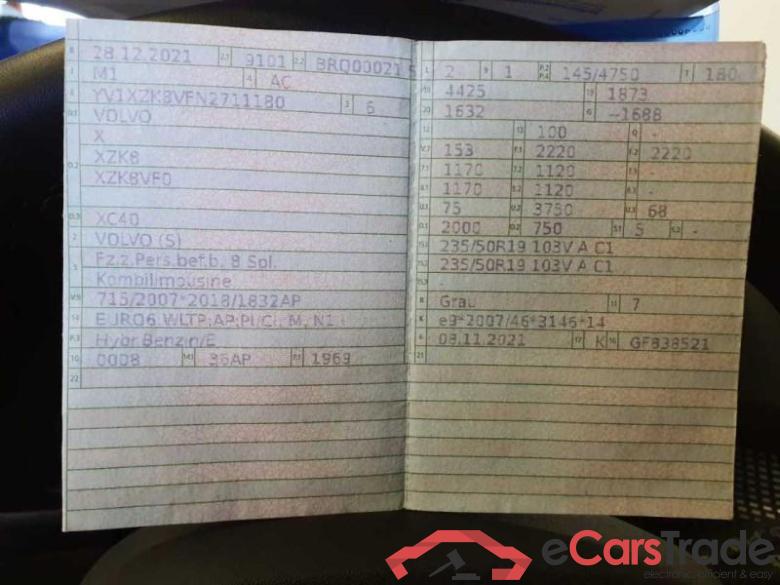 B 28.12.2021 2.1 9101 2.2 BRQ00021 5
J M1 4 AC
E YV1XZK8VFN2711180 3 6
D.1 VOLVO
X
D.2 XZK8
XZK8VF0
D.3 XC40
2 VOLVO (S)
5 Fz.z.Pers.bef.b. 8 Spl.
Kombilimousine
V.9 715/2007*2018/1832AP
14 EURO6 WLTP;AP;PI/CI; M, N1
P.3 Hybr.Benzin/E
10 0008 14.1 36AP P.1 1969
22
L 2 9 1 P.2 P.4 145/4750 T 180
18 4425 19 1873
20 1632 G -1688
12 - 13 100 Q -
V.7 153 F.1 2220 F.2 2220
7.1 1170 7.2 1120 7.3 -
8.1 1170 8.2 1120 8.3 -
U.1 75 U.2 3750 U.3 68
O.1 2000 O.2 750 S.1 5 S.2 -
15.1 235/50R19 103V A C1
15.2 235/50R19 103V A C1
15.3 -
R Grau 11 7
K e9*2007/46*3146*14
6 08.11.2021 17 K 16 GF838521
21
eCarsTrade
electronic, efficient & easy